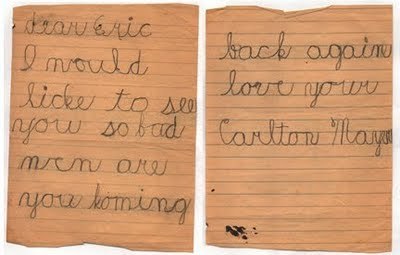 dear Eric
I would
licke to see
you so bad
wen are
you koming
back again
love your
Carlton